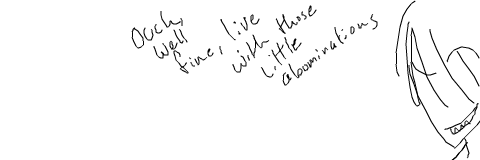 Ouch,
Well
fine, live
with those
little
abominations